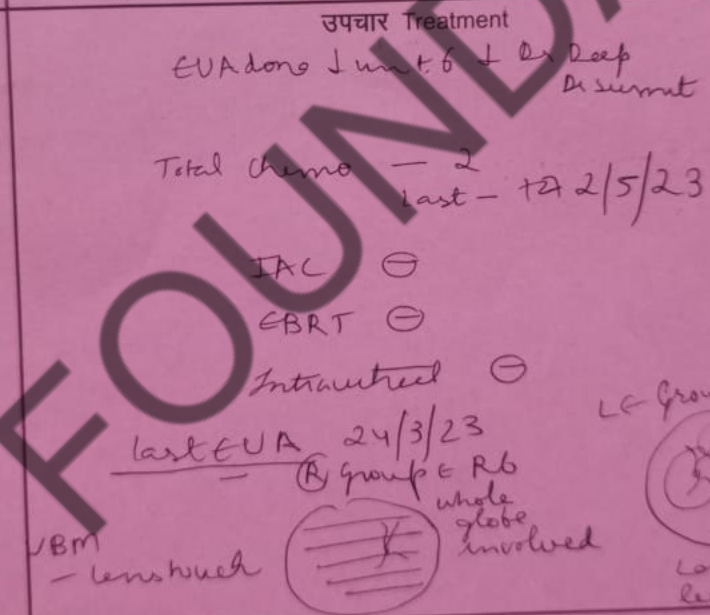 उपचार Treatment
EUA done Unit 6 Dr Deep
Dr Sumit
Total chemo — 2
Last — 2/5/23
IAC ⊖
EBRT ⊖
Intravitreal ⊖
last EUA 24/3/23
Ⓡ group E Rb
whole
globe
involved
LE Grou
UBM
- lens touch
FOUNDA